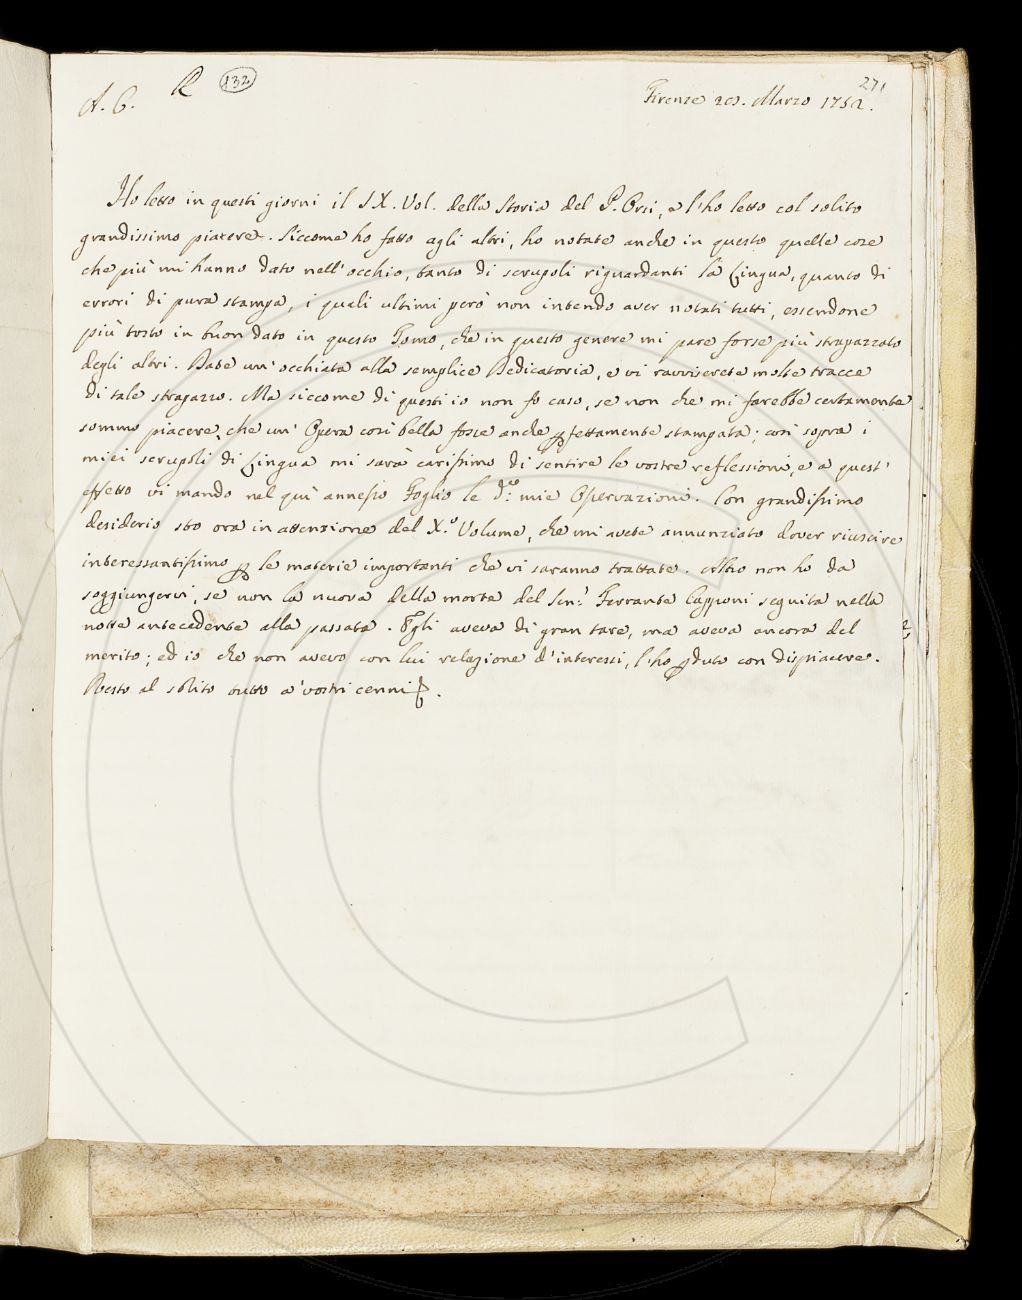 A. C. R 132
271
Firenze 20. Marzo 1752.
Ho letto in questi giorni il IX. Vol. della Storia del P. Orsi, e l'ho letto col solito
grandissimo piacere. Siccome ho fatto agli altri, ho notate anche in questo quelle coze
che più mi hanno dato nell'occhio, tanto di scrupoli riguardanti la Lingua, quanto di
errori di pura stampa, i quali ultimi però non intendo aver notati tutti, essendone
più tosto in buon dato in questo Tomo, che in questo genere mi pare forse più strapazzato
degli altri. Date un'occhiata alla semplice Dedicatoria, e vi ravviserete molte tracce
di tale strapazzo. Ma siccome di questi io non fo caso, se non che mi farebbe certamente
sommo piacere, che un'Opera così bella fosse anche pfettamente stampata; così sopra i
miei scrupoli di Lingua mi sarà carissimo di sentire le vostre reflessioni, e a quest'
effetto vi mando nel quì annesso Foglio le d.e mie Osservazioni. Con grandissimo
desiderio sto ora in attenzione del X.o Volume, che mi avete annunziato dover riuscire
interessantissimo p le materie importanti che vi saranno trattate. Altro non ho da
soggiungervi, se non la nuova della morte del Sen.r Ferrante Capponi seguita nella
notte antecedente alla passata. Egli aveva di gran tare, ma aveva ancora del
merito; ed io che non avevo con lui relazione d'interessi, l'ho pduto con dispiacere.
Resto al solito tutto a' vostri cenni